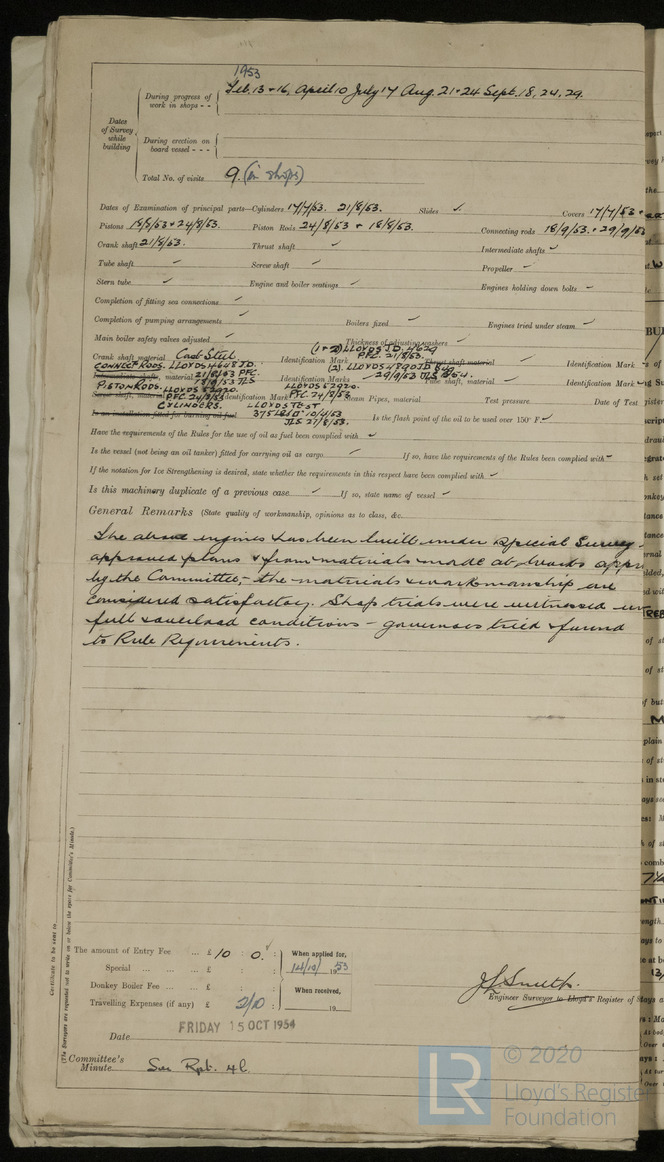 1953
During progress of work in shops - - Feb. 13 + 16, April 10 July 17 Aug. 21 + 24 Sept. 18, 24, 29.
Dates of Survey while building
During erection on board vessel - - -
Total No. of visits 9. (in shops)
Dates of Examination of principal parts—Cylinders 17/7/53. 21/8/53. Slides ✓ Covers 17/7/53 +
Pistons 18/8/53 + 24/8/53. Piston Rods 24/8/53 + 18/8/53. Connecting rods 18/9/53. + 29/9/53
Crank shaft 21/8/53. Thrust shaft ✓ Intermediate shafts ✓
Tube shaft ✓ Screw shaft ✓ Propeller ✓
Stern tube ✓ Engine and boiler seatings ✓ Engines holding down bolts ✓
Completion of fitting sea connections ✓
Completion of pumping arrangements ✓ Boilers fixed ✓ Engines tried under steam ✓
Main boiler safety valves adjusted ✓ Thickness of adjusting washers ✓
Crank shaft material Cast Steel Identification Mark (1 + 2) LLOYDS J.D. 4629 PFC. 21/8/53. Thrust shaft material ✓ Identification Mark ✓
CONNECT RODS. LLOYDS 4648 J.D. 21/8/53 PFC. 18/9/53 JLS material Identification Marks (2). LLOYDS 4890 J.D. 29/9/53 JLS Tube shaft, material ✓ Identification Mark ✓
PISTON RODS. LLOYDS 52920. PFC 24/8/53 Screw shaft, material Identification Mark LLOYDS 52920. PFC 24/8/53 Steam Pipes, material Test pressure Date of Test
CYLINDERS. LLOYDS TEST 375 10/4/53 JLS 27/8/53.
Is an installation fitted for burning oil fuel Is the flash point of the oil to be used over 150° F. ✓
Have the requirements of the Rules for the use of oil as fuel been complied with ✓
Is the vessel (not being an oil tanker) fitted for carrying oil as cargo ✓ If so, have the requirements of the Rules been complied with ✓
If the notation for Ice Strengthening is desired, state whether the requirements in this respect have been complied with ✓
Is this machinery duplicate of a previous case ✓ If so, state name of vessel ✓
General Remarks (State quality of workmanship, opinions as to class, &c.
The above engines has been built under Special Survey
approved plans & from materials made at works
by the Committee, - the materials & workmanship are
considered satisfactory. Shop trials were witnessed
full & overload conditions - governors tried & found
to Rule Requirements.
Certificate to be sent to
(The Surveyors are requested not to write on or below the space for Committee's Minute.)
The amount of Entry Fee ... £ 10 : 0 : When applied for,
Special ... ... ... £ : : 14/10/ 1953
Donkey Boiler Fee ... ... £ : : When received,
Travelling Expenses (if any) £ 2/10 : 19
J L Smith.
Engineer Surveyor to Lloyd's Register of
Date FRIDAY 15 OCT 1954
Committee's Minute See Rpt. 4b.
LR © 2020
Lloyd's Register
Foundation